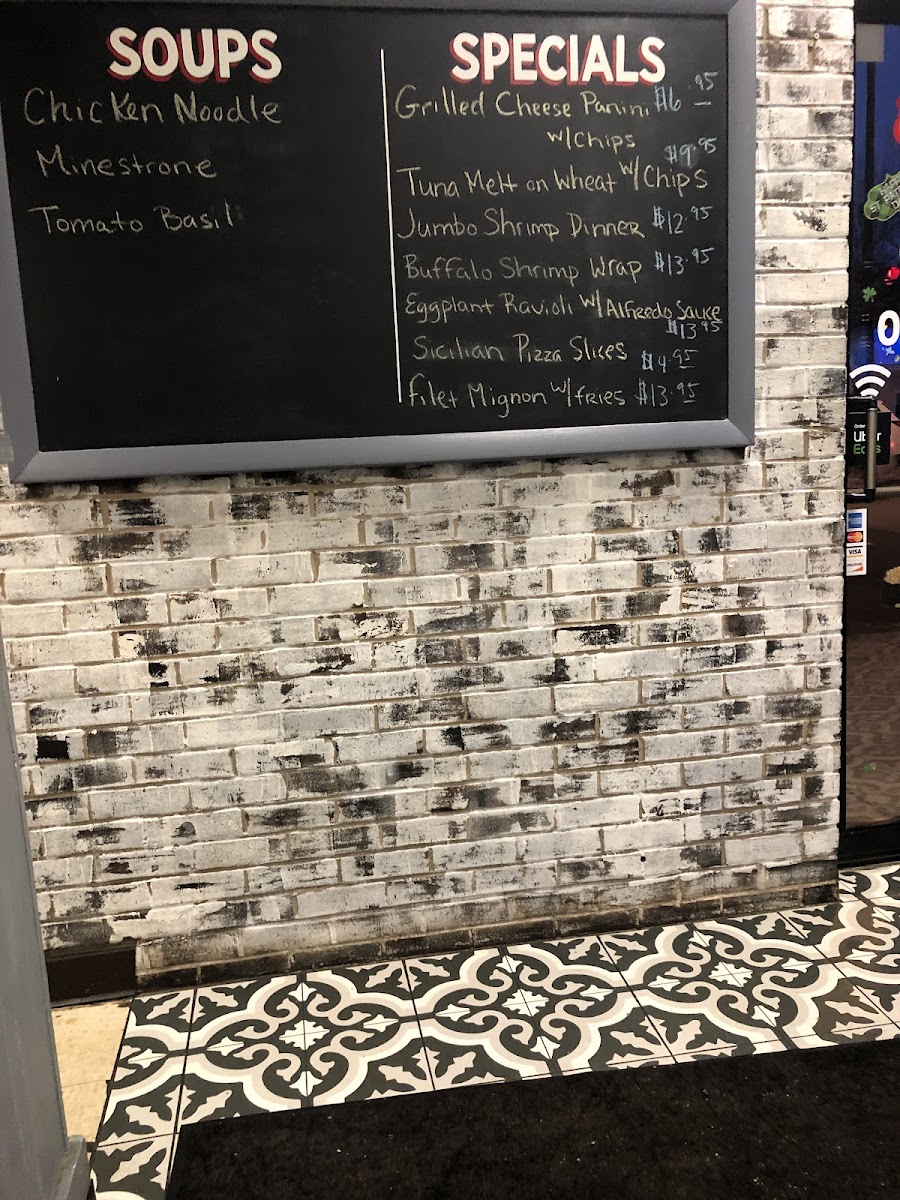 SOUPS
Chicken Noodle
Minestrone
Tomato Basil
SPECIALS
Grilled Cheese Panini $6.95
w/chips
$9.95
Tuna Melt on Wheat w/Chips
Jumbo Shrimp Dinner $12.95
Buffalo Shrimp Wrap $13.95
Eggplant Ravioli w/Alfredo Sauce
$13.95
Sicilian Pizza Slices $4.95
filet Mignon w/fries $13.95
Order
Uber
Eats
VISA